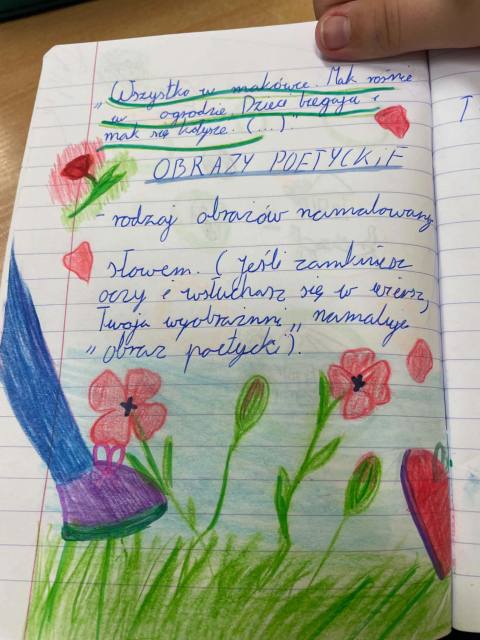 „Wszystko w makówce. Mak rośnie
w ogrodzie. Dzieci biegają i
mak się kołysze. (...)"
OBRAZY POETYCKIE
- rodzaj obrazów namalowany
słowem. (jeśli zamkniesz
oczy i wsłuchasz się w wiersz,
Twoja wyobraźnni „namaluje
" obraz poetycki).
T